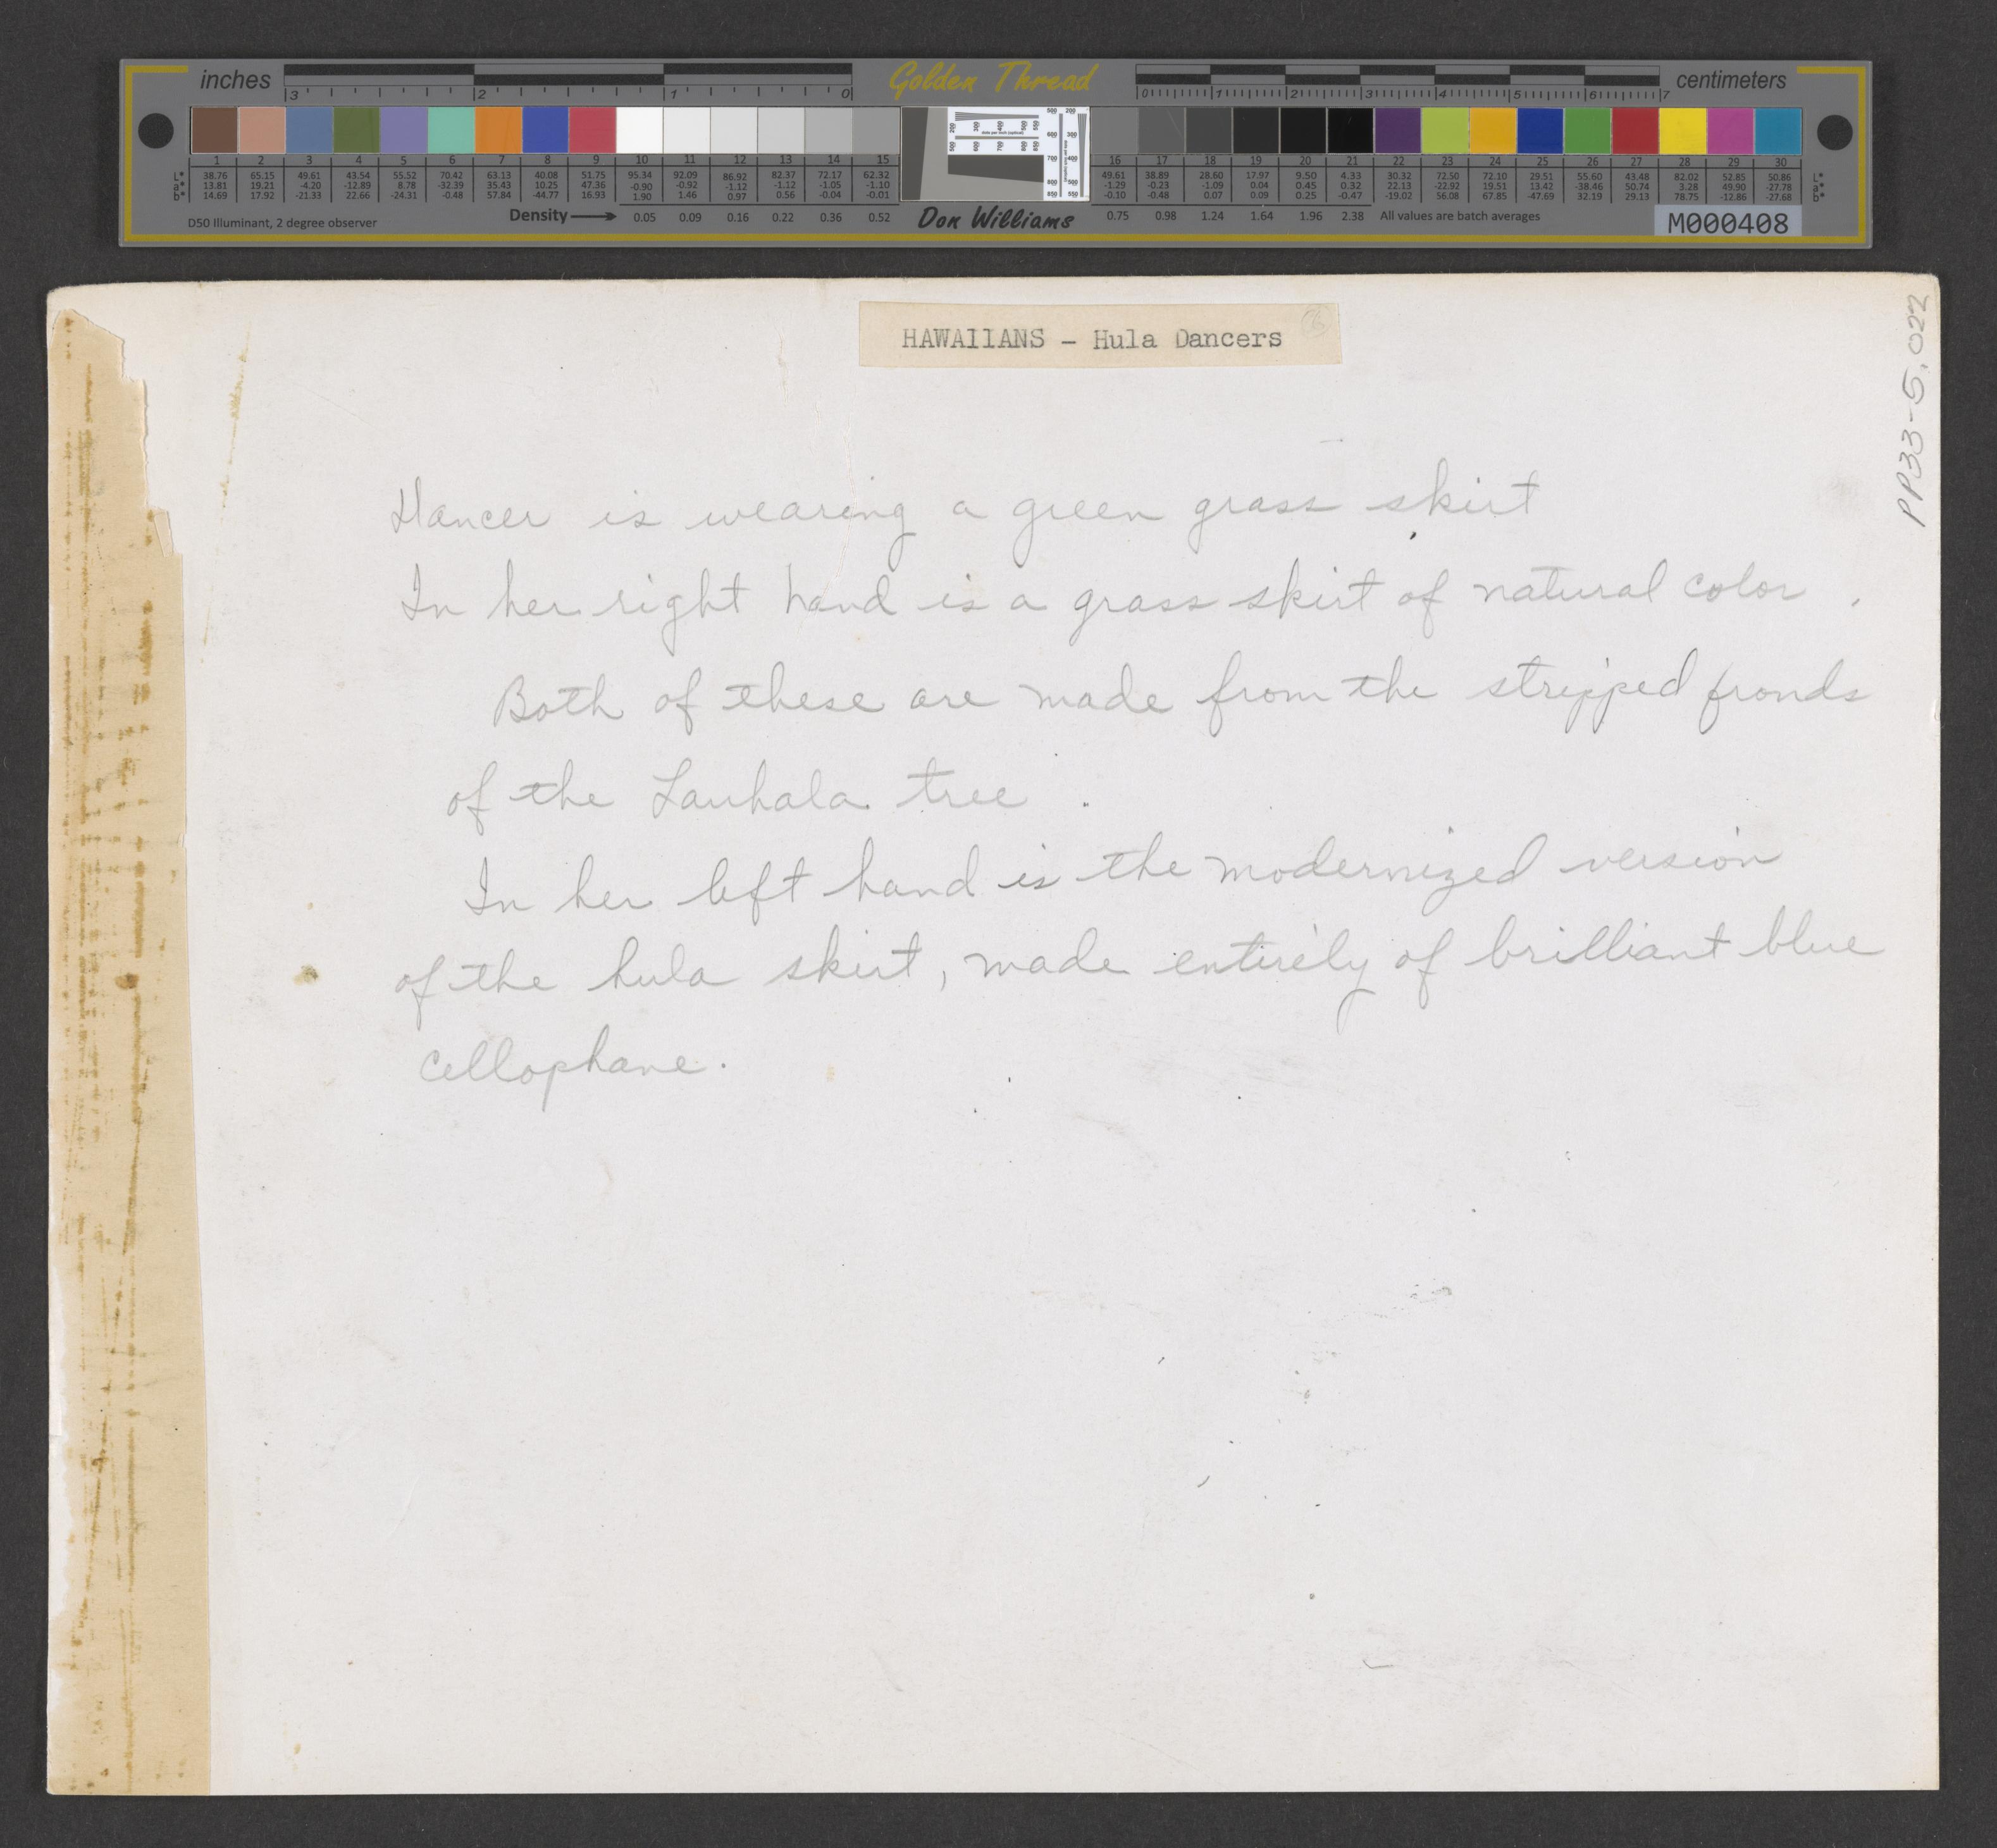 inches
3 2 1 0
Golden Thread
0 1 2 3 4 5 6 7
centimeters
1 2 3 4 5 6 7 8 9 10 11 12 13 14 15
16 17 18 19 20 21 22 23 24 25 26 27 28 29 30
L* 38.76 65.15 49.61 43.54 55.52 70.42 63.13 40.08 51.75 95.34 92.09 86.92 82.37 72.17 62.32
a* 13.81 19.21 -4.20 -12.89 8.78 -32.39 35.43 10.25 47.36 -0.90 -0.92 -1.12 -1.12 -1.05 -1.10
b* 14.69 17.92 -21.33 22.66 -24.31 -0.48 57.84 -44.77 16.93 1.90 1.46 0.97 0.56 -0.04 -0.01
49.61 38.89 28.60 17.97 9.50 4.33 30.32 72.50 72.10 29.51 55.60 43.48 82.02 52.85 50.86 L*
-1.29 -0.23 -1.09 0.04 0.45 0.32 22.13 -22.92 19.51 13.42 -38.46 50.74 3.28 49.90 -27.78 a*
-0.10 -0.48 0.07 0.09 0.25 -0.47 -19.02 56.08 67.85 -47.69 32.19 29.13 78.75 -12.86 -27.68 b*
D50 Illuminant, 2 degree observer
Density 0.05 0.09 0.16 0.22 0.36 0.52
Don Williams
0.75 0.98 1.24 1.64 1.96 2.38 All values are batch averages
M000408
HAWAIIANS - Hula Dancers
PP33-5.022
Dancer is wearing a green grass skirt
In her right hand is a grass skirt of natural color .
Both of these are made from the stripped fronds
of the Lauhala tree .
In her left hand is the modernized version
of the hula skirt, made entirely of brilliant blue
cellophane.